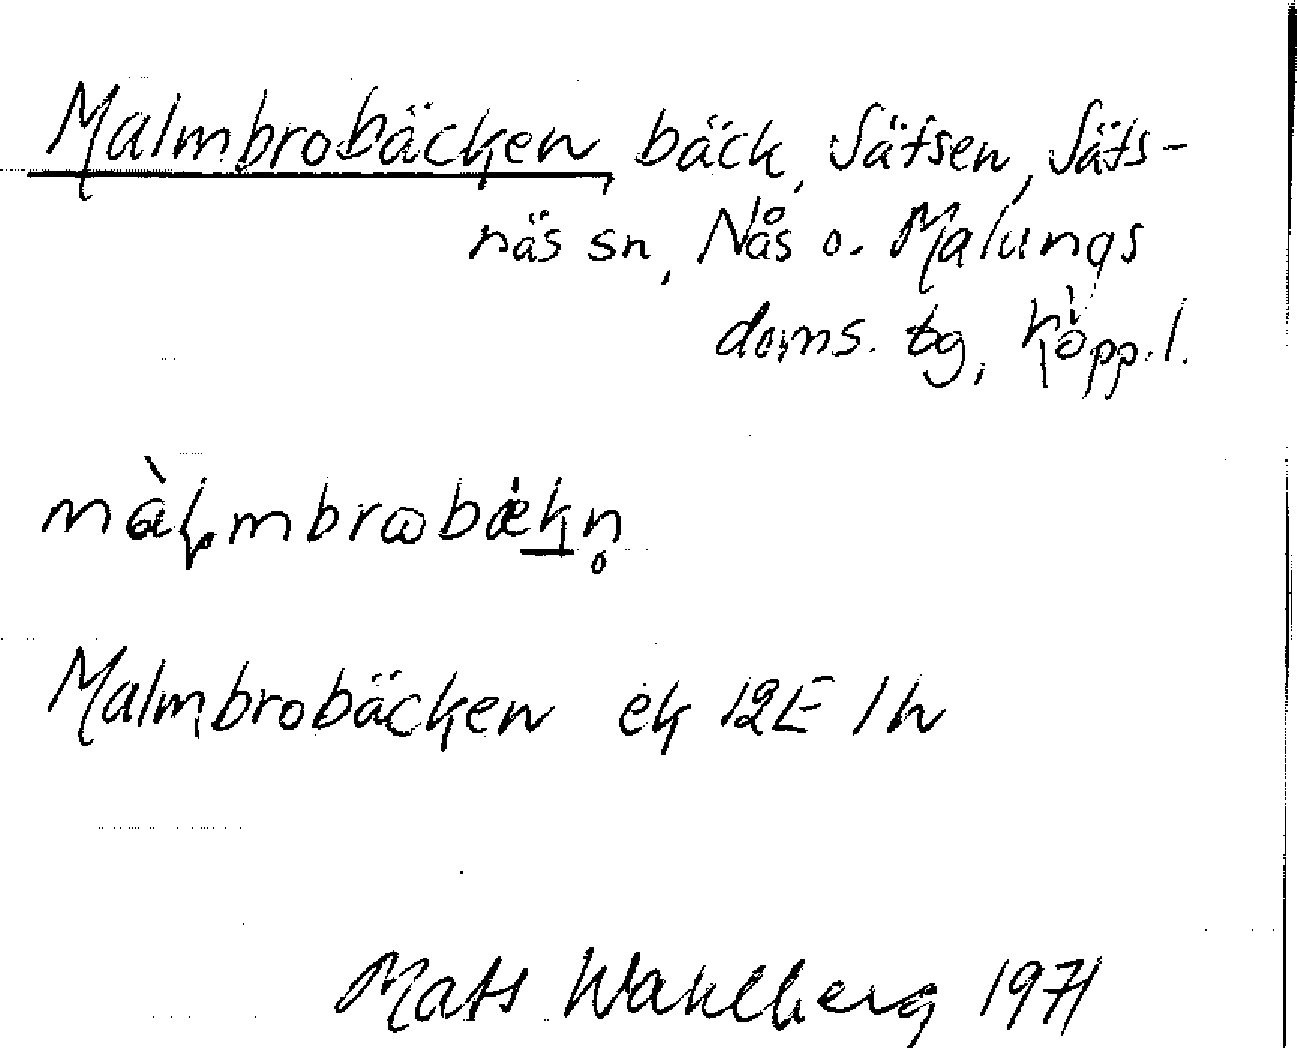 Malmbrobäcken, bäck, Sätsen, Säfs-
näs sn, Nås o. Malungs
doms. tg, Kopp.l.
màḷmbrωbækn̥
Malmbrobäcken ek 12E 1h
Mats Wahlberg 1971